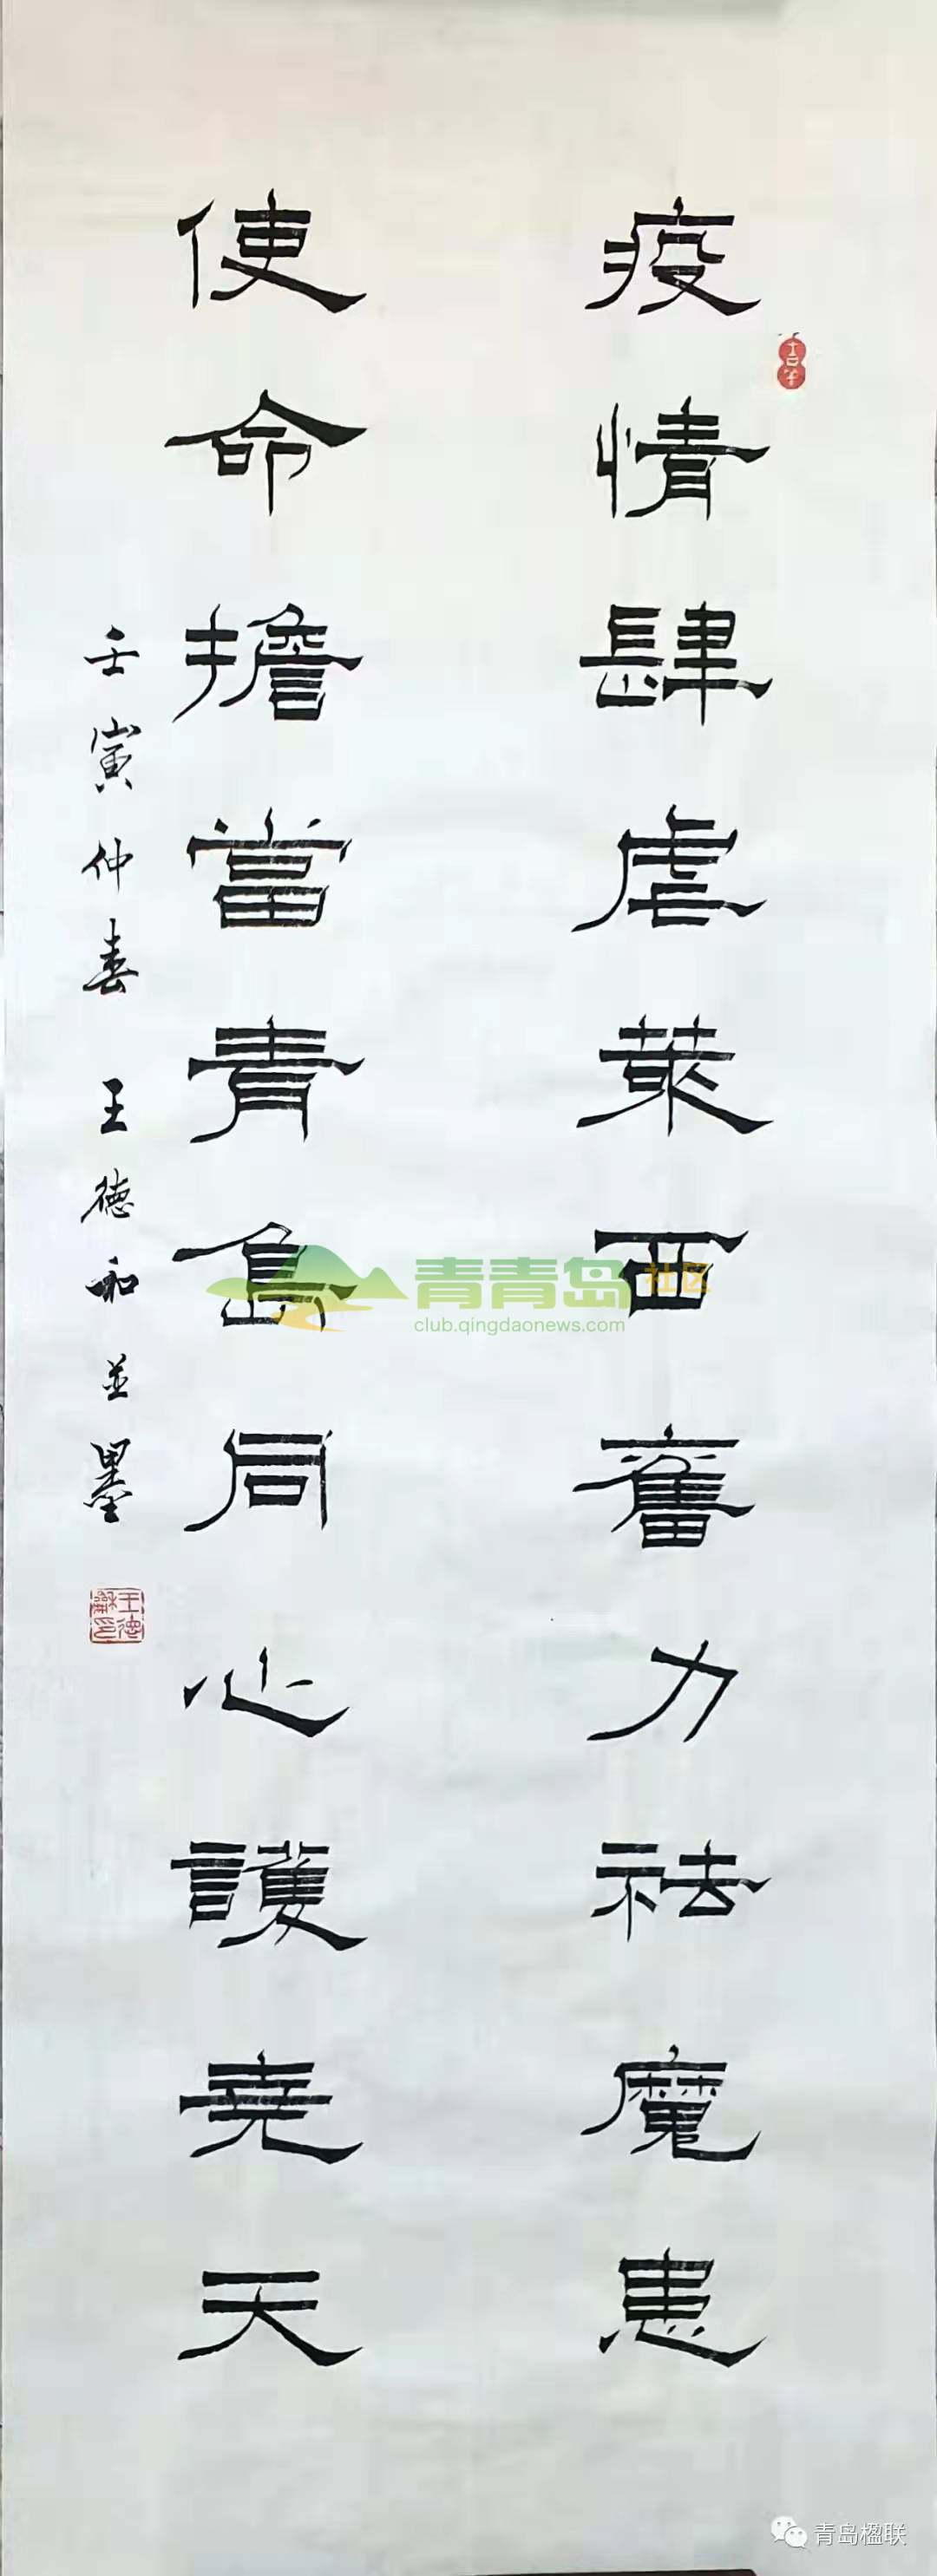 疫情肆虐萊西奮力祛魔患
使命擔當青島同心護堯天
壬寅仲春 王德和並墨
吉羊
王德龢印
青青岛社区
club.qingdaonews.com
青岛楹联